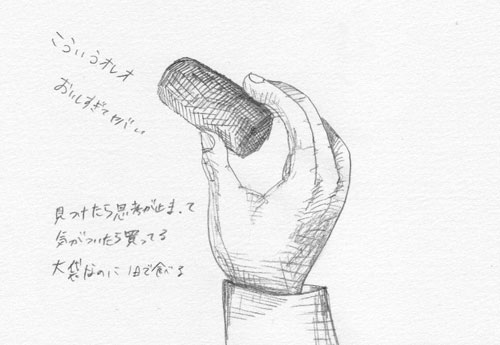 こういうオレオ
おいしすぎてヤバい
見つけたら思考が止まって
気がついたら買ってる
大袋なのに1日で食べる